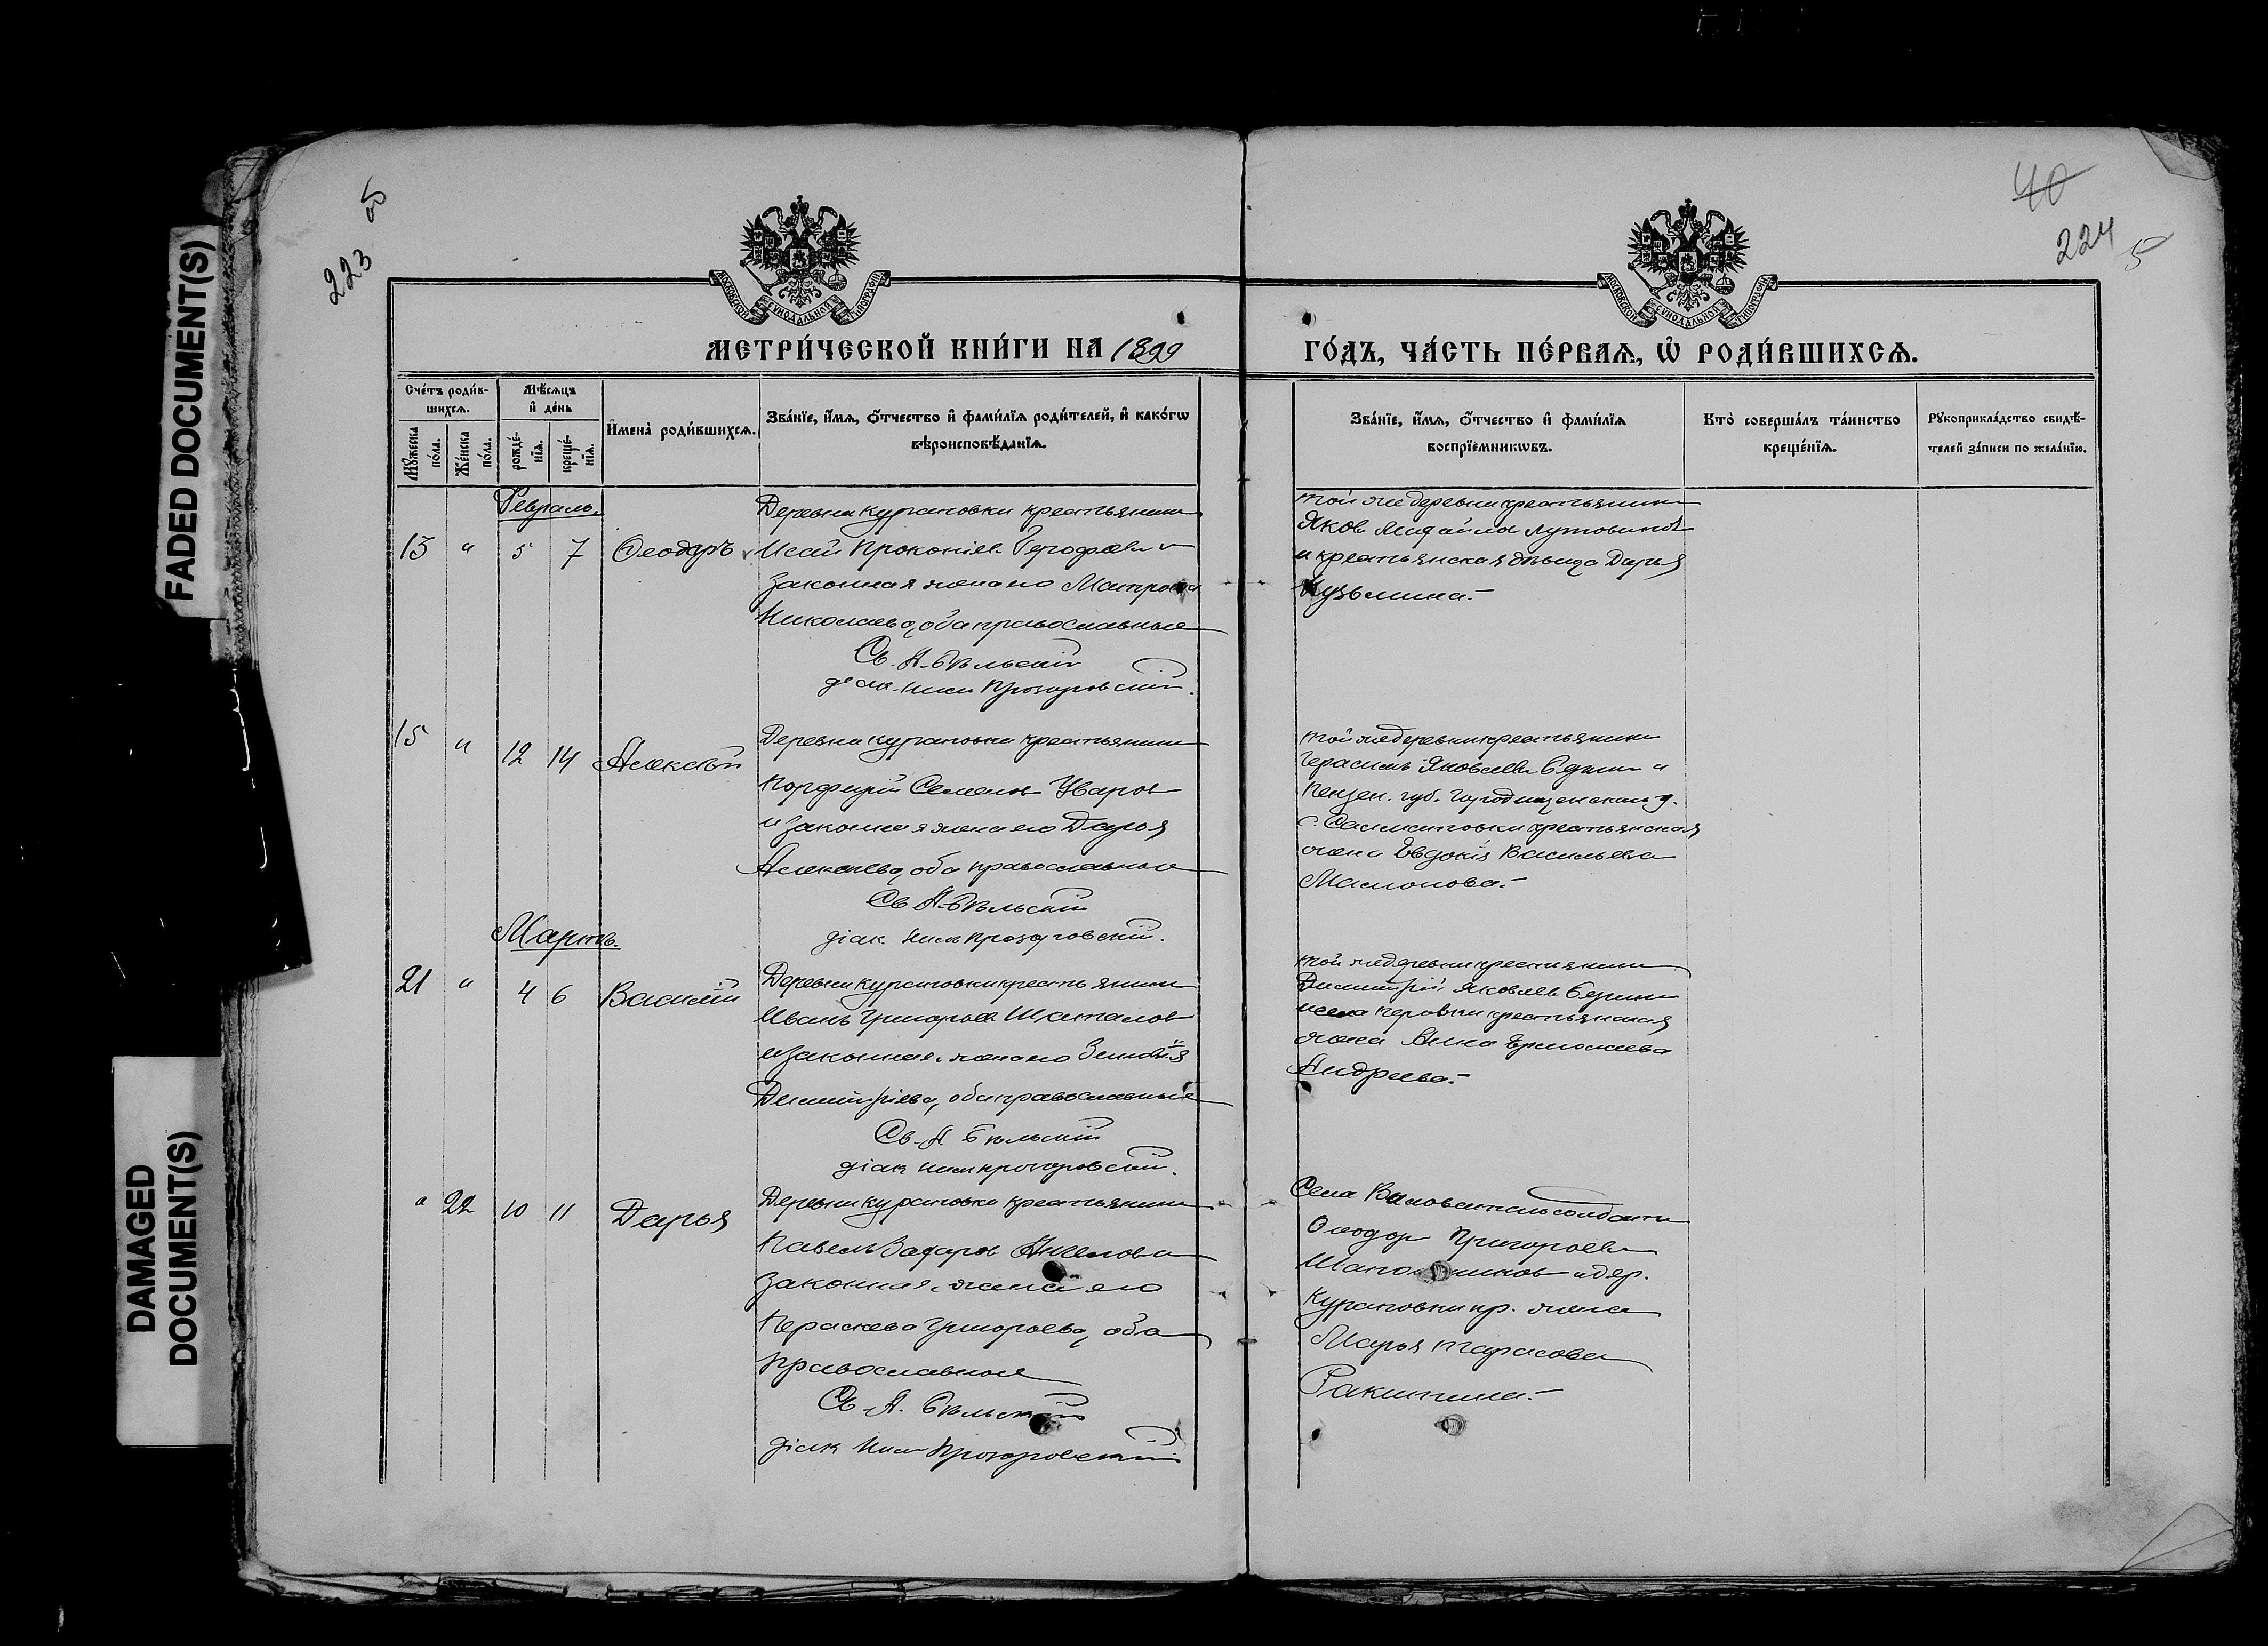 FADED DOCUMENT(S)
DAMAGED
DOCUMENT(S)
223 об
40
224
5
МОСКОВСКОЙ СѴНОДАЛЬНОЙ ТИПОГРАФІИ
МОСКОВСКОЙ СѴНОДАЛЬНОЙ ТИПОГРАФІИ
МЕТРИ́ЧЕСКОЙ КНИ́ГИ НА 1899
ГО́ДЪ, ЧА́СТЬ ПЕ́РВАѦ, Ѽ РОДИ́ВШИХСѦ.
Сче́тъ роди́в-
шихсѧ.
Мꙋ́жеска
по́ла.
Же́нска
по́ла.
Мѣ́сѧцъ
и҆ де́нь
рожде́-
нїѧ.
креще́-
нїѧ.
И҆мена̀ роди́вшихсѧ.
Зва́нїе, и҆́мѧ, ѻ҆́тчество и҆ фами́лїѧ роди́телей, и҆ како́гѡ
вѣроисповѣ́данїѧ.
Зва́нїе, и҆́мѧ, ѻ҆́тчество и҆ фами́лїѧ
воспрїе́мникѡвъ.
Кто̀ соверша́лъ та́инство
креще́нїѧ.
Рꙋкоприкла́дство свидѣ́-
телей за́писи по жела́нїю.
Февраль.
13 " 5 7 Ѳеодоръ
Деревни Куратовки крестьянинъ
Исай Прокопіевъ и
законная жена его Матрона
Николаева, оба православные
Св. А. Бѣльскій
діак. Прозоровскій.
той же деревни крестьянинъ
Яковъ
и крестьянская дѣвица Дарья
Кузьмина.-
15 " 12 14 Алексѣй
Деревни Куратовки крестьянинъ
Порфирій Семеновъ Уваровъ
и законная жена его Дарья
Алексѣева, оба православные
Св. А. Бѣльскій
діак. Прозоровскій.
той же деревни крестьянинъ
Герасимъ Яковлевъ и
Пензен. губ. Городищенскаго у.
с. крестьянская
жена Евдокія Васильева
Мартъ.
21 " 4 6 Василій
Деревни Куратовки крестьянинъ
Иванъ Григорьев Шаталовъ
и законная жена его Зиновія
Димитріева, оба православные
Св. А. Бѣльскій
діак Прозоровскій.
той же деревни крестьянинъ
Димитрій Яковлевъ
крестьянская
жена Анна Ермолаева
Андреева.-
" 22 10 11 Дарья
Деревни Куратовки крестьянинъ
Павелъ Захаровъ и
законная жена его
Параскева Григорьева, оба
православные
Св. А. Бѣльскій
діак Прозоровскій
Села
Ѳеодоръ Григорьевъ
и дер.
Куратовки кр. жена
Марья Тарасова
Ракитина.-